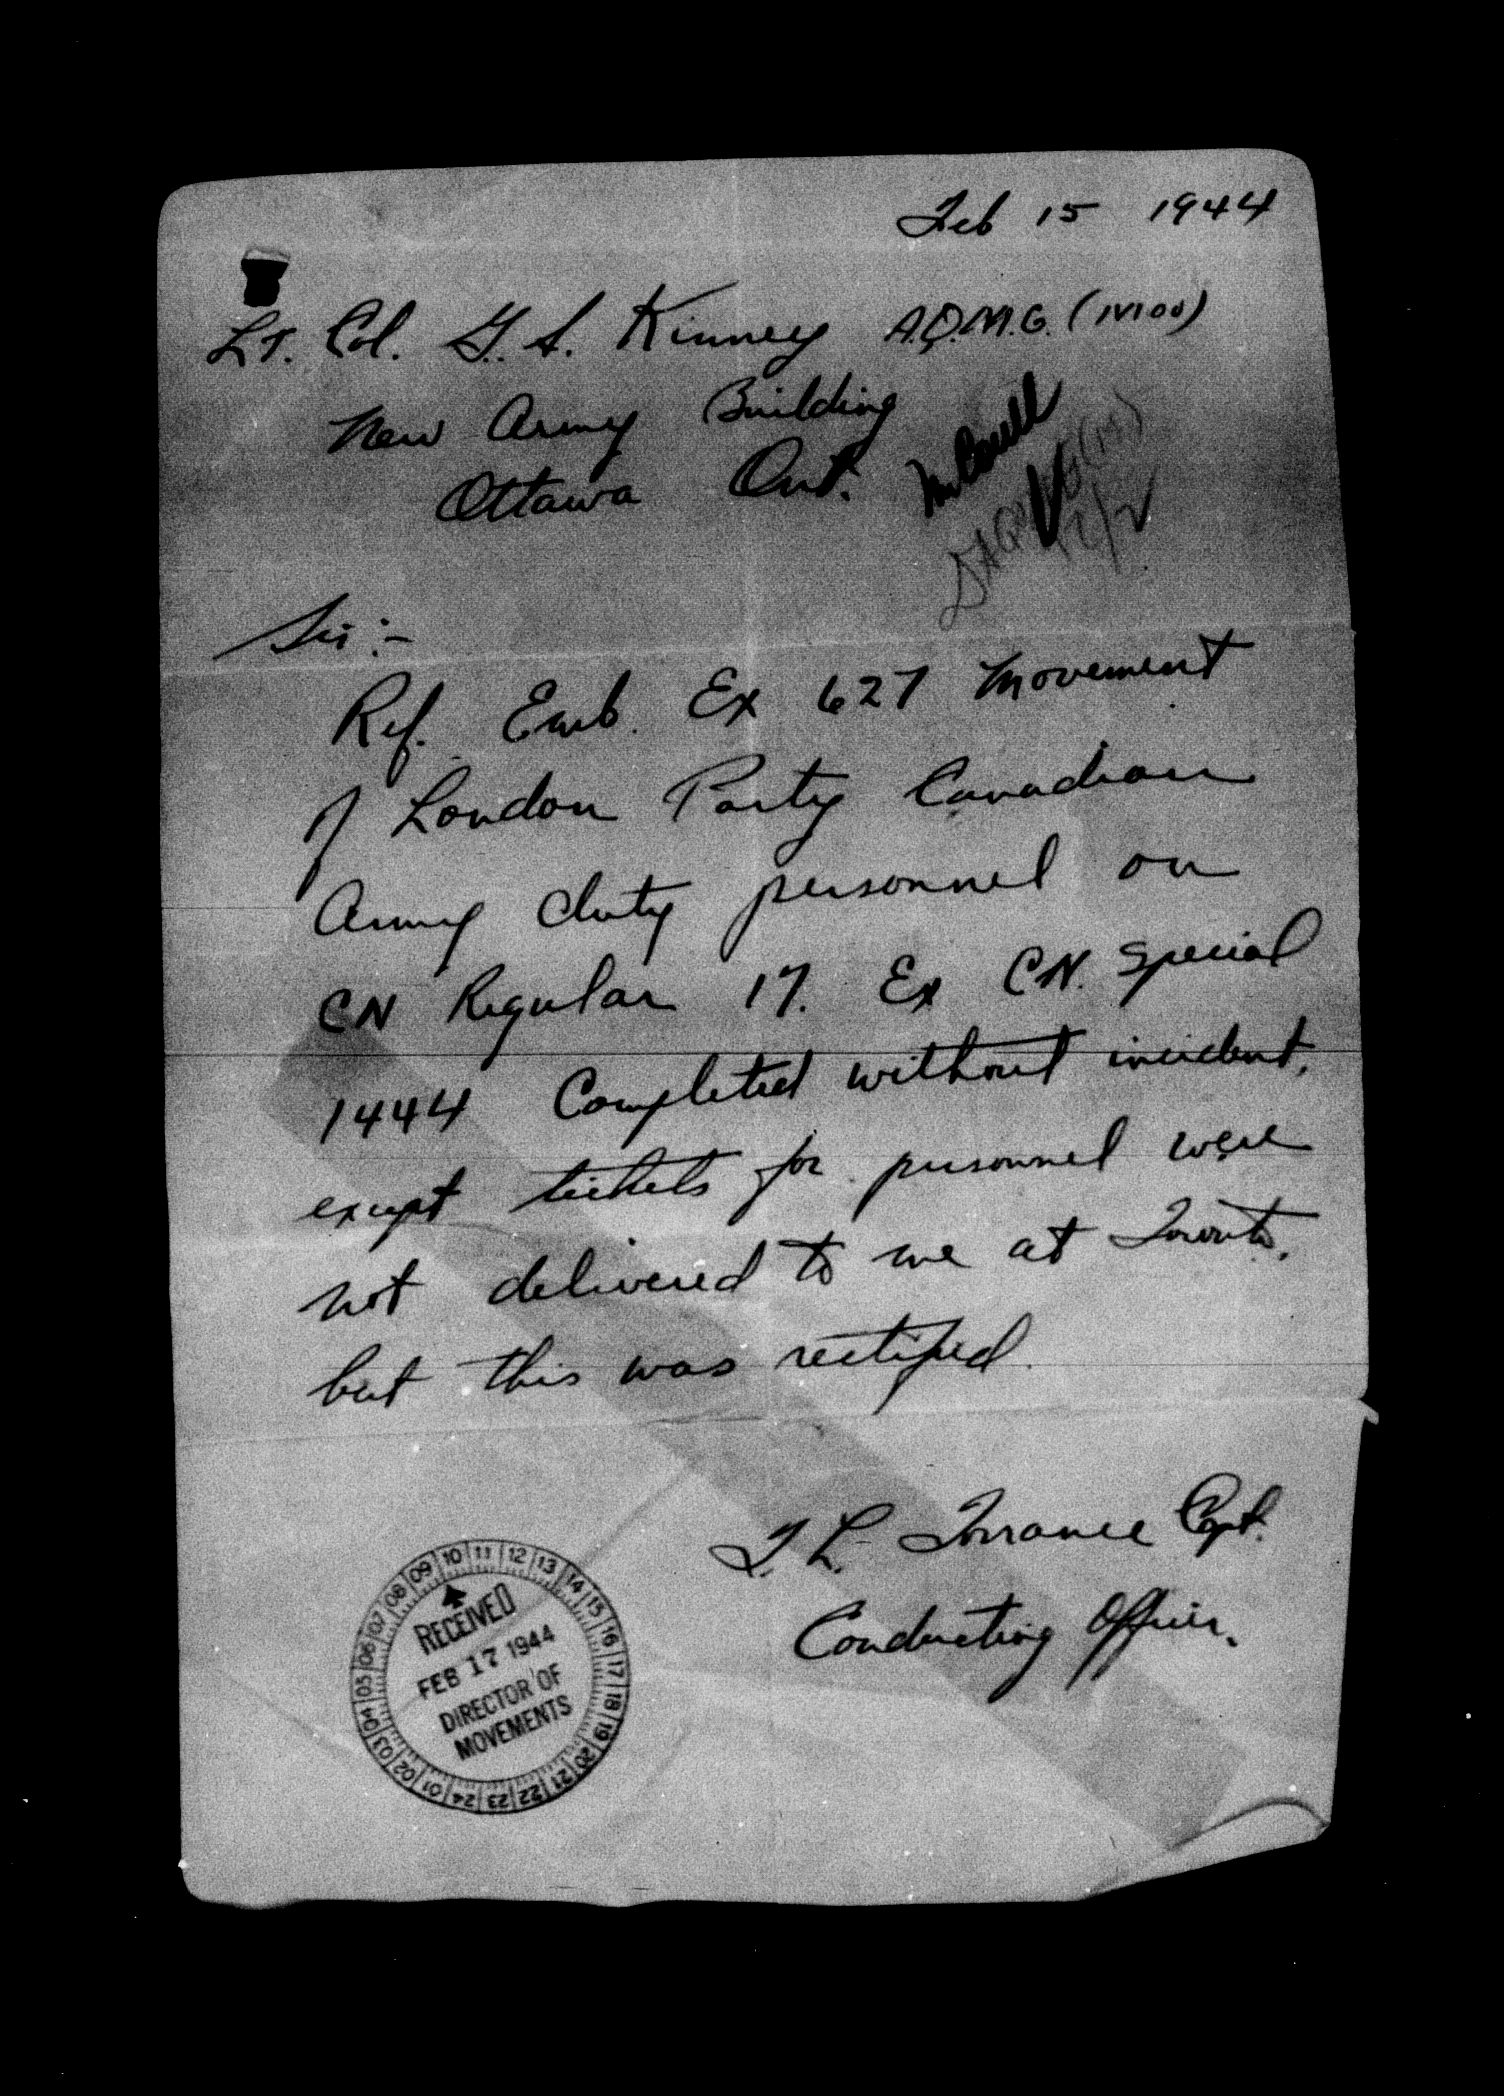 Feb 15 1944
Lt. Col. G. S. Kinney A.Q.M.G. (M)
New Army Building
Ottawa Ont.
12/2
Sir:-
Ref. Emb. Ex 627 Movement
of London Party Canadian
Army duty personnel on
CN Regular 17. Ex CN. Special
1444 Completed without incident,
except tickets for personnel were
not delivered to me at Toronto,
but this was rectified.
T. L. Torrance Capt.
Conducting Officer.
01 02 03 04 05 06 07 08 09 10 11 12 13 14 15 16 17 18 19 20 21 22 23 24
RECEIVED
FEB 17 1944
DIRECTOR OF
MOVEMENTS